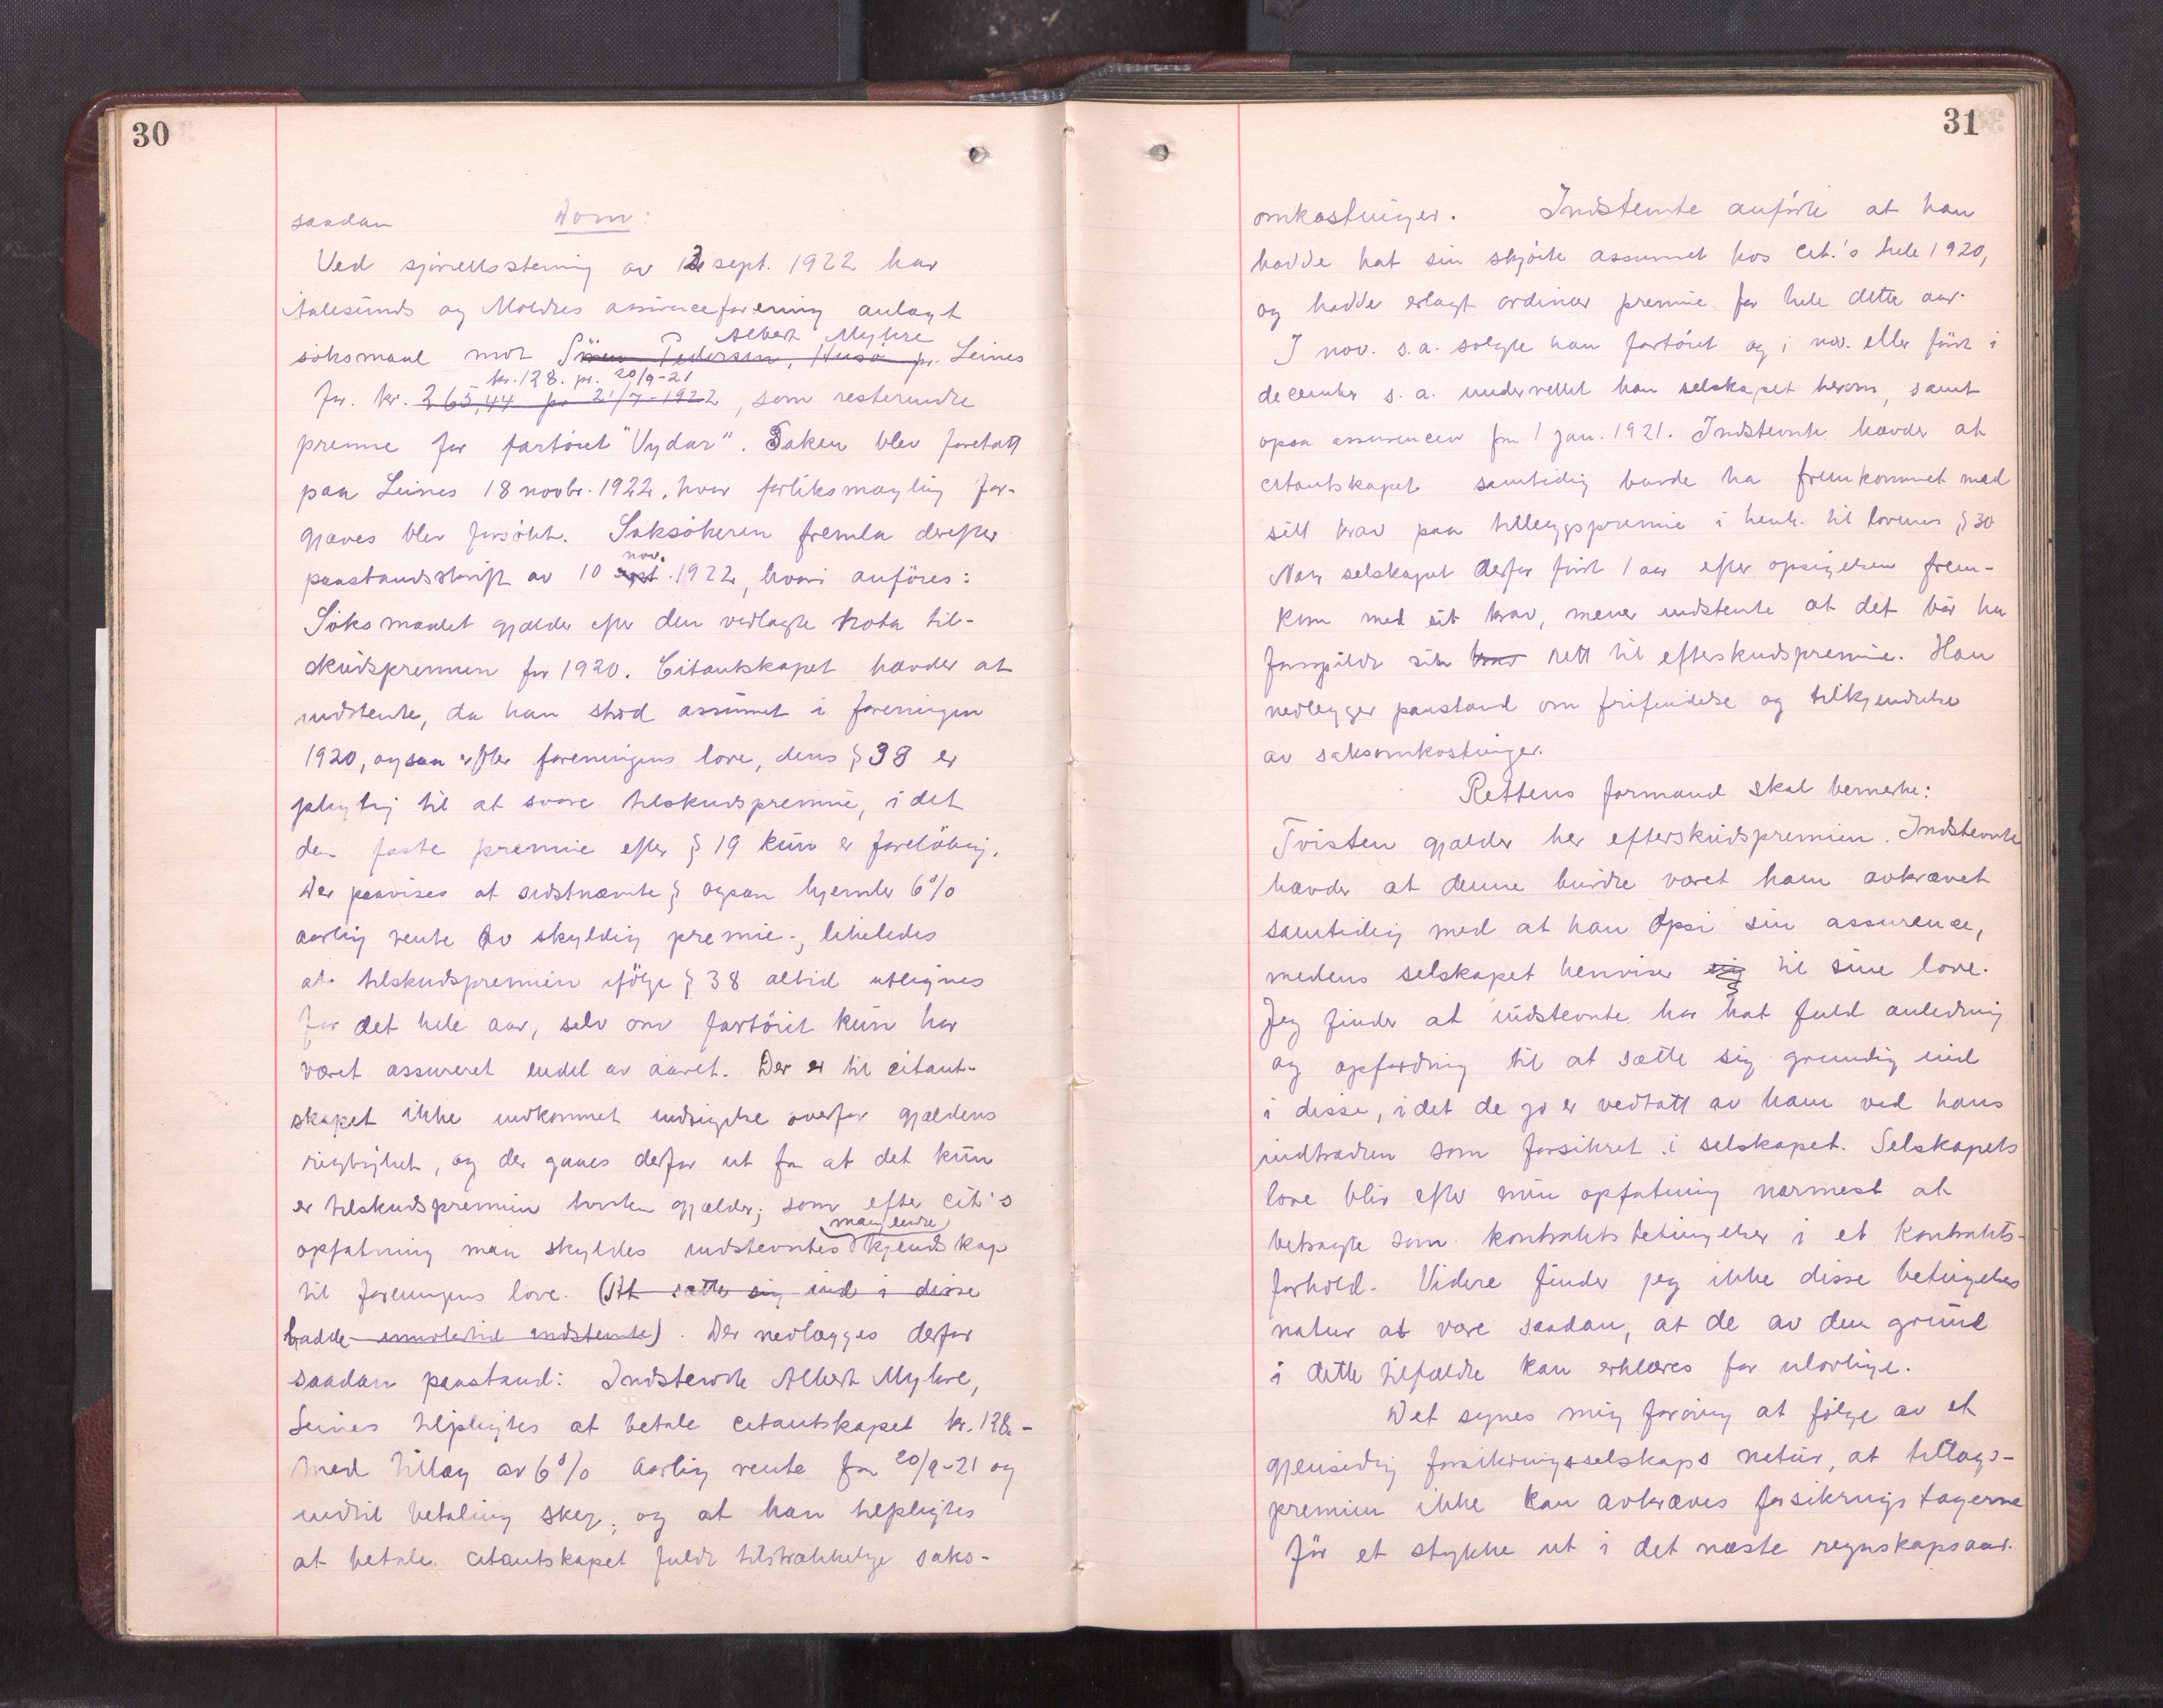 30
saadan Dom:
Ved sjørettsstevning av 12 sept. 1922 har
Aalesunds og Moldes assuranceforening anlagt
Albert Myhre
søksmaal mot Sören Pedersen, Husø pr. Leines
kr. 128. pr. 20/9-21
for kr. 265,44 pr 21/7-1922, som resterende
premie for fartöiet "Vydar". Saken blev foretatt
paa Leines 18 novbr. 1922, hvor forliksmægling for-
gjæves blev forsökt. Saksökeren fremla derefter
nov.
paastandsskrift av 10 sept. 1922, hvori anföres:
Söksmaalet gjælder efter den vedlagte nota til-
skudspremien for 1920. Citantskapet hævder at
indstevnte, da han stod assureret i foreningen
1920, ogsaa efter foreningens love, dens § 38 er
pligtig til at svare tilskudspremie, i det
den faste premie efter § 19 kun er foreløbig.
Der paavises at sidstnævnte § ogsaa hjemler 6%
aarlig rente av skyldig premie; likeledes
at tilskudspremien ifölge § 38 altid utlignes
for det hele aar, selv om fartöiet kun har
været assureret endel av aaret. Der er til citant-
skapet ikke indkommet indsigelse overfor gjældens
rigtighet, og der gaaes derfor ut fra at det kun
er tilskudspremien tvisten gjælder, som efter cit's
manglende
opfatning maa skyldes indstevntes kjendskap
til foreningens love. (At sætte sig ind i disse
hadde imidlertid indstevnte). Der nedlægges derfor
saadan paastand: Indstevnte Albert Myhre,
Leines tilpligtes at betale citantskapet kr. 128.-
med tillæg av 6% aarlig rente fra 20/9-21 og
indtil betaling skjer, og at han tilpligtes
at betale citantskapet fulde tilstrækkelige saks-
31
omkostninger. Indstevnte anførte at han
hadde hat sin skjöite assureret hos cit.'s hele 1920,
og hadde erlagt ordinær premie for hele dette aar.
I nov. s.a. solgte han fartöiet og i nov. eller först i
december s.a. underrettet han selskapet herom, samt
opsa assurancen fra 1 jan. 1921. Indstevnte hævder at
citantskapet samtidig burde ha fremkommet med
sitt krav paa tilleggspremie i henh. til lovenes § 30
Naar selskapet derfor først 1 aar efter opsigelsen frem-
kom med sit krav, mener indstevnte at det bör ha
forspildt sin krav rett til efterskudspremie. Han
nedlegger paastand om frifindelse og tilkjendelse
av saksomkostninger.
Rettens formand skal bemerke:
Tvisten gjælder her efterskudspremien. Indstevnte
hævder at denne burde været ham avkrævet
samtidig med at han opsa sin assurance,
medens selskapet henviser sig til sine love.
Jeg finder at indstevnte har hat fuld anledning
og opfordring til at sætte sig grundig ind
i disse, i det de jo er vedtatt av ham ved hans
indtræden som forsikret i selskapet. Selskapets
love blir efter min opfatning nærmest at
betragte som kontraktsbetingelser i et kontrakts-
forhold. Videre finder jeg ikke disse betingelses
natur at være saadan, at de av den grund
i dette tilfælde kan erklæres for ulovlige.
Det synes mig forøvrig at følge av et
gjensidig forsikringsselskaps natur, at tillægs-
premien ikke kan avkræves forsikringstagerne
för et stykke ut i det næste regnskapsaar.